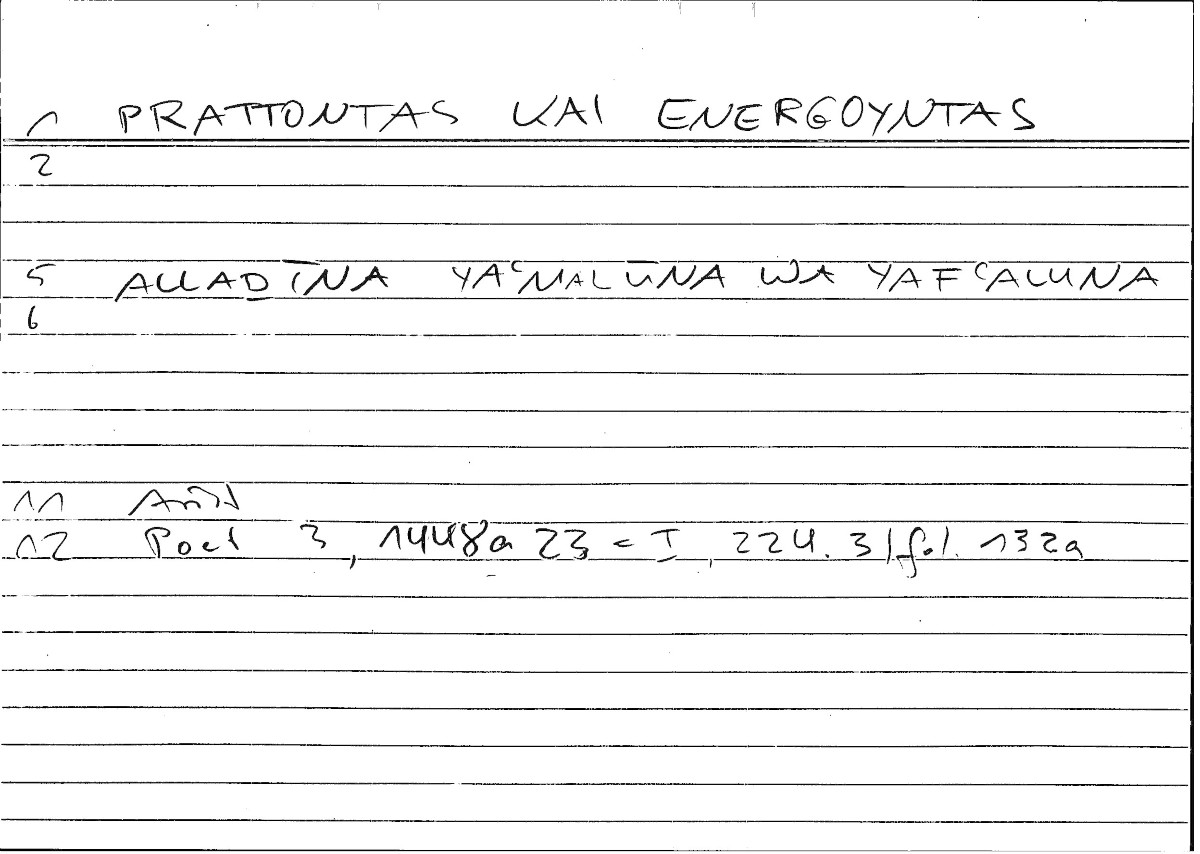 1 PRATTONTAS KAI ENERGOYNTAS
2
5 ALLAḎĪNA YAʿMALŪNA WA YAFʿALUNA
6
11 Arist
12 Poet 3, 1448a 23 = I, 224.3 / fol. 132a